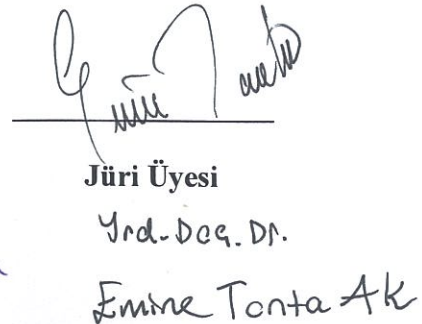 Jüri Üyesi
Yrd. Doç. Dr.
Emine Tonta Ak